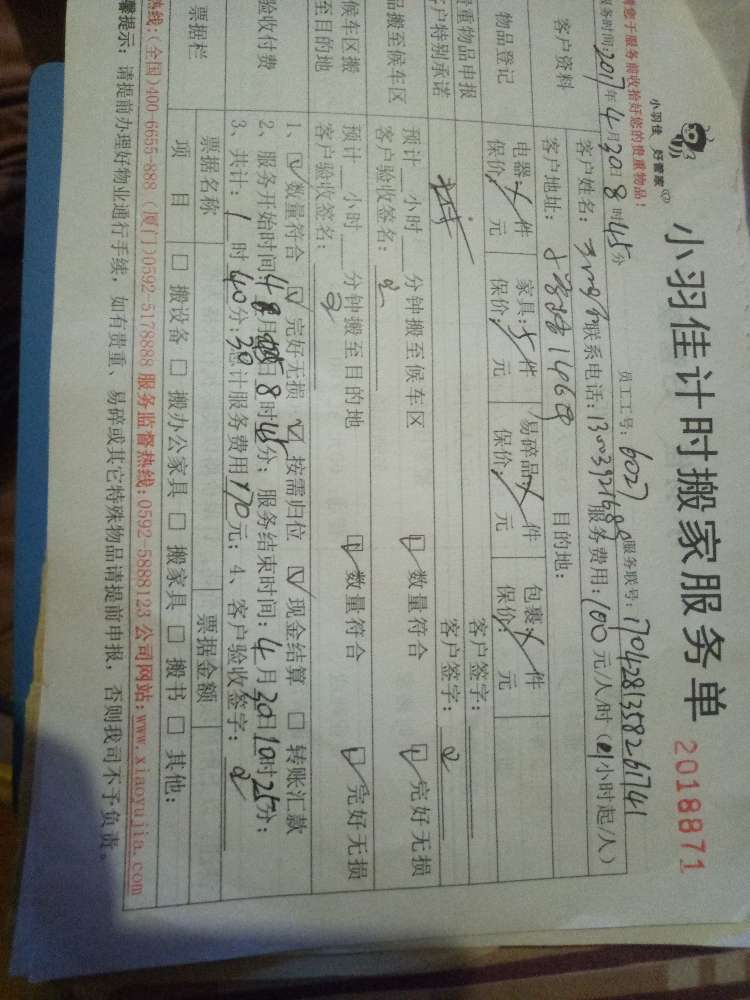 小羽佳计时搬家服务单
2018871
小羽佳 好管家
请您于服务前收拾好您的贵重物品!
员工工号: 6027 服务联号: 1704281358261741
服务时间: 2017年4月30日8时45分
客户资料
客户姓名: 联系电话: 服务费用: 100元/人时( 小时起/人)
客户地址: 目的地:
物品登记
电器: 件 家具: 件 易碎品: 件 包裹: 件
保价: 元 保价: 元 保价: 元 保价: 元
贵重物品申报 客户签字:
客户特别承诺 客户签字:
品搬至候车区
预计 小时 分钟搬至候车区 数量符合 完好无损
客户验收签名:
候车区搬至目的地
预计 小时 分钟搬至目的地 数量符合 完好无损
客户验收签名:
验收付费
1、 数量符合 完好无损 按需归位 现金结算 转账汇款
2、服务开始时间: 4月 日8时45分; 服务结束时间: 4月30日10时25分;
3、共计: 1时40分; 总计服务费用170元; 4、客户验收签字:
票据栏
票据名称 票据金额
项目 搬设备 搬办公家具 搬家具 搬书 其他:
热线:(全国)400-6655-888 (厦门)0592-5178888 服务监督热线:0592-5888123 公司网站:www.xiaoyujia.com
馨提示: 请提前办理好物业通行手续, 如有贵重、易碎或其它特殊物品请提前申报, 否则我司不予负责。